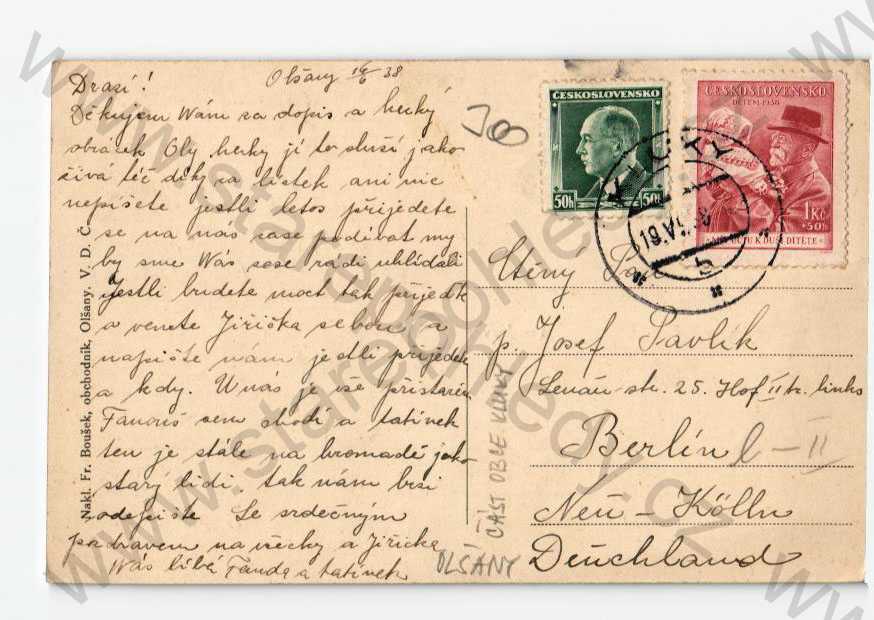 Olšany 16/6 38
Drazí!
Děkujem Wám za dopis a hezký
obrázek Oly hezky jí to sluší jako
živá též díky za lístek ani nic
nepíšete jestli letos přijedete
se na nás zase podívat my
by sme Wás zase rádi uhlídali
Jestli budete moct tak přijeďte
a vemte Jiříčka sebou a
napište nám jestli přijedete
a kdy. U nás je vše při starém
Fanouš sem chodí a tatínek
ten je stále na hromadě jako
starý lidi, tak nám brzi
odepište Se srdečným
pozdravem na všecky a Jiříčka
Wás líbá Fanda a tatínek
Nakl. Fr. Boušek, obchodník, Olšany. V. D. Č.
ČESKOSLOVENSKO
50h 50h
ČESKOSLOVENSKO
DĚTEM 1938
1Kč
+50h
DUŠI DÍTĚTE
KLUKY
Ctěný Pán
p. Josef Pavlík
Lenau-str. 25. Hof II tr. links
Berlín
Neu-Kölln
Deuchland
OLŠANY
ČÁST OBCE KLUKY
www.starepohledy.cz